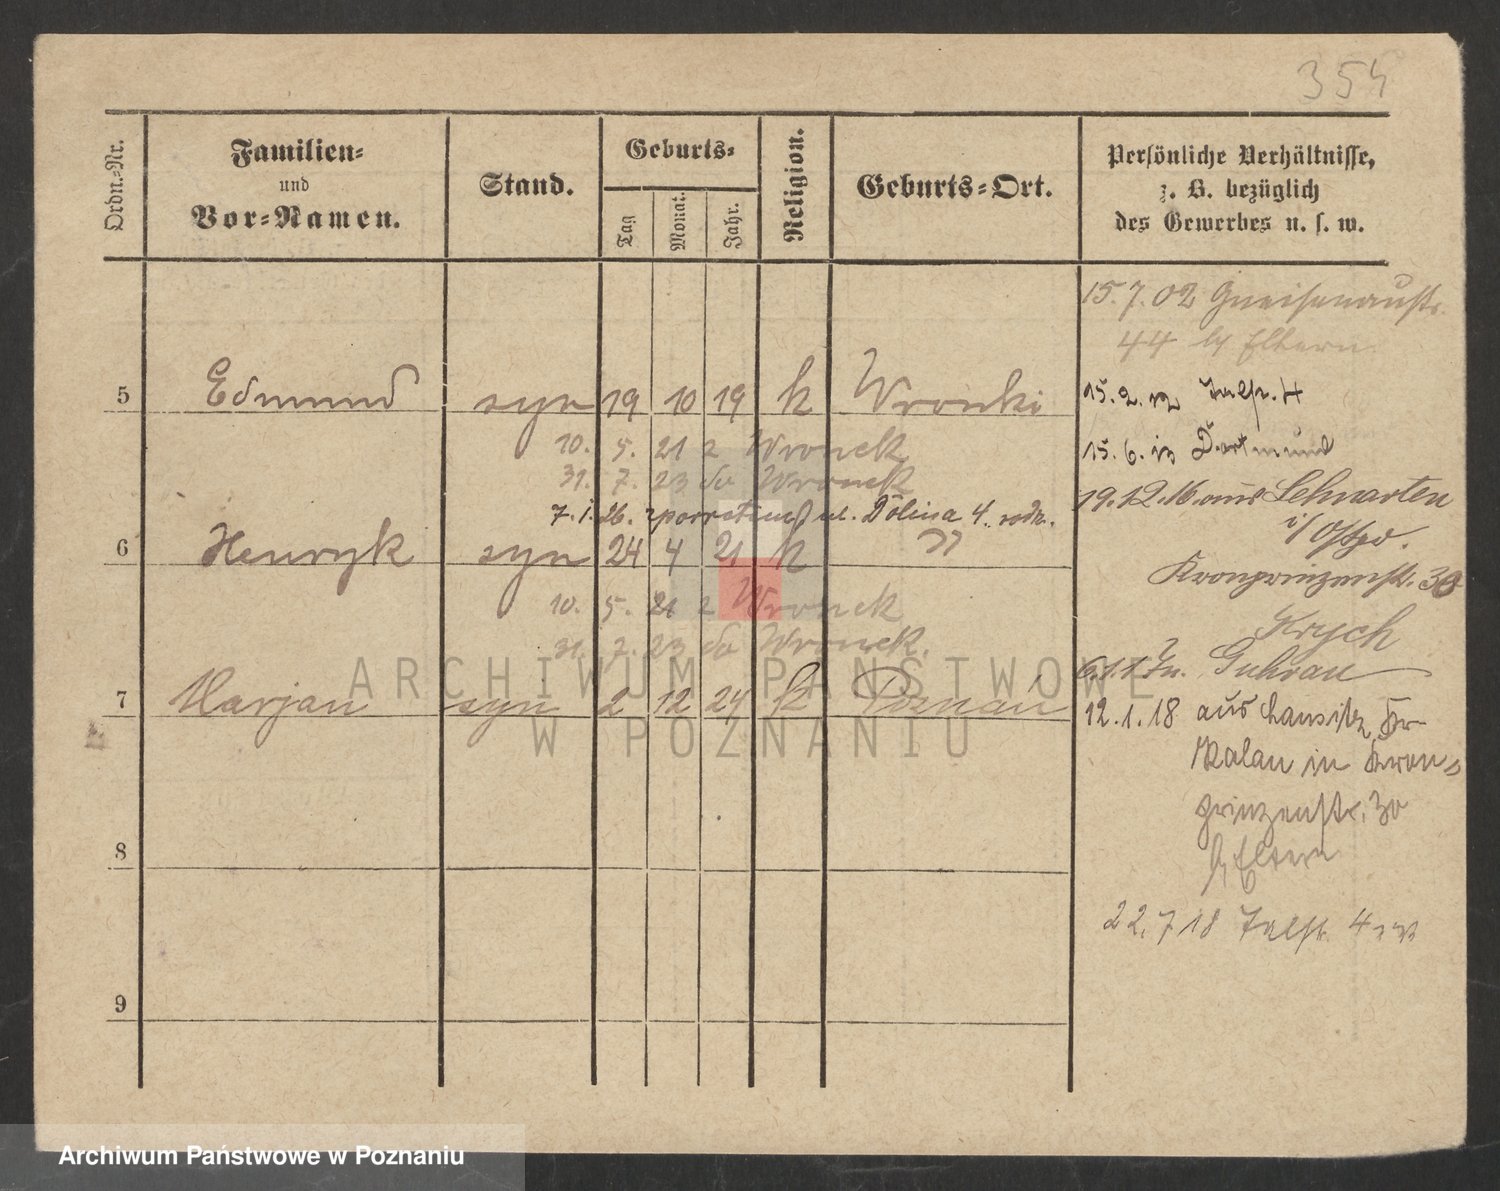 354
Ordn.-Nr.
Familien-
und
Vor-Namen.
Stand.
Geburts-
Tag
Monat.
Jahr.
Religion.
Geburts-Ort.
Persönliche Verhältnisse,
z. B. bezüglich
des Gewerbes u. s. w.
15.7.02 Gneisenaustr.
44 Eltern
5 Edmund syn 19 10 19 k Wronki
15.2.12 4
10. 5. 21 z Wronek
15.6.13 Dortmund
31. 7. 23 do Wronek
19.12.16 aus
7.1.26. z powrotem ul. Dolina 4.
6 Henryk syn 24 4 21 k "
Kronprinzenstr. 30
10. 5. 21 z Wronek
Krych
31. 7. 23 do Wronek.
Guhrau
7 Marjan syn 2 12 24 k Poznań
12.1.18 aus
Kalau in Kron-
prinzenstr. 30
b/ Eltern
8
22.7 18 4
9
ARCHIWUM PAŃSTWOWE
W POZNANIU
Archiwum Państwowe w Poznaniu